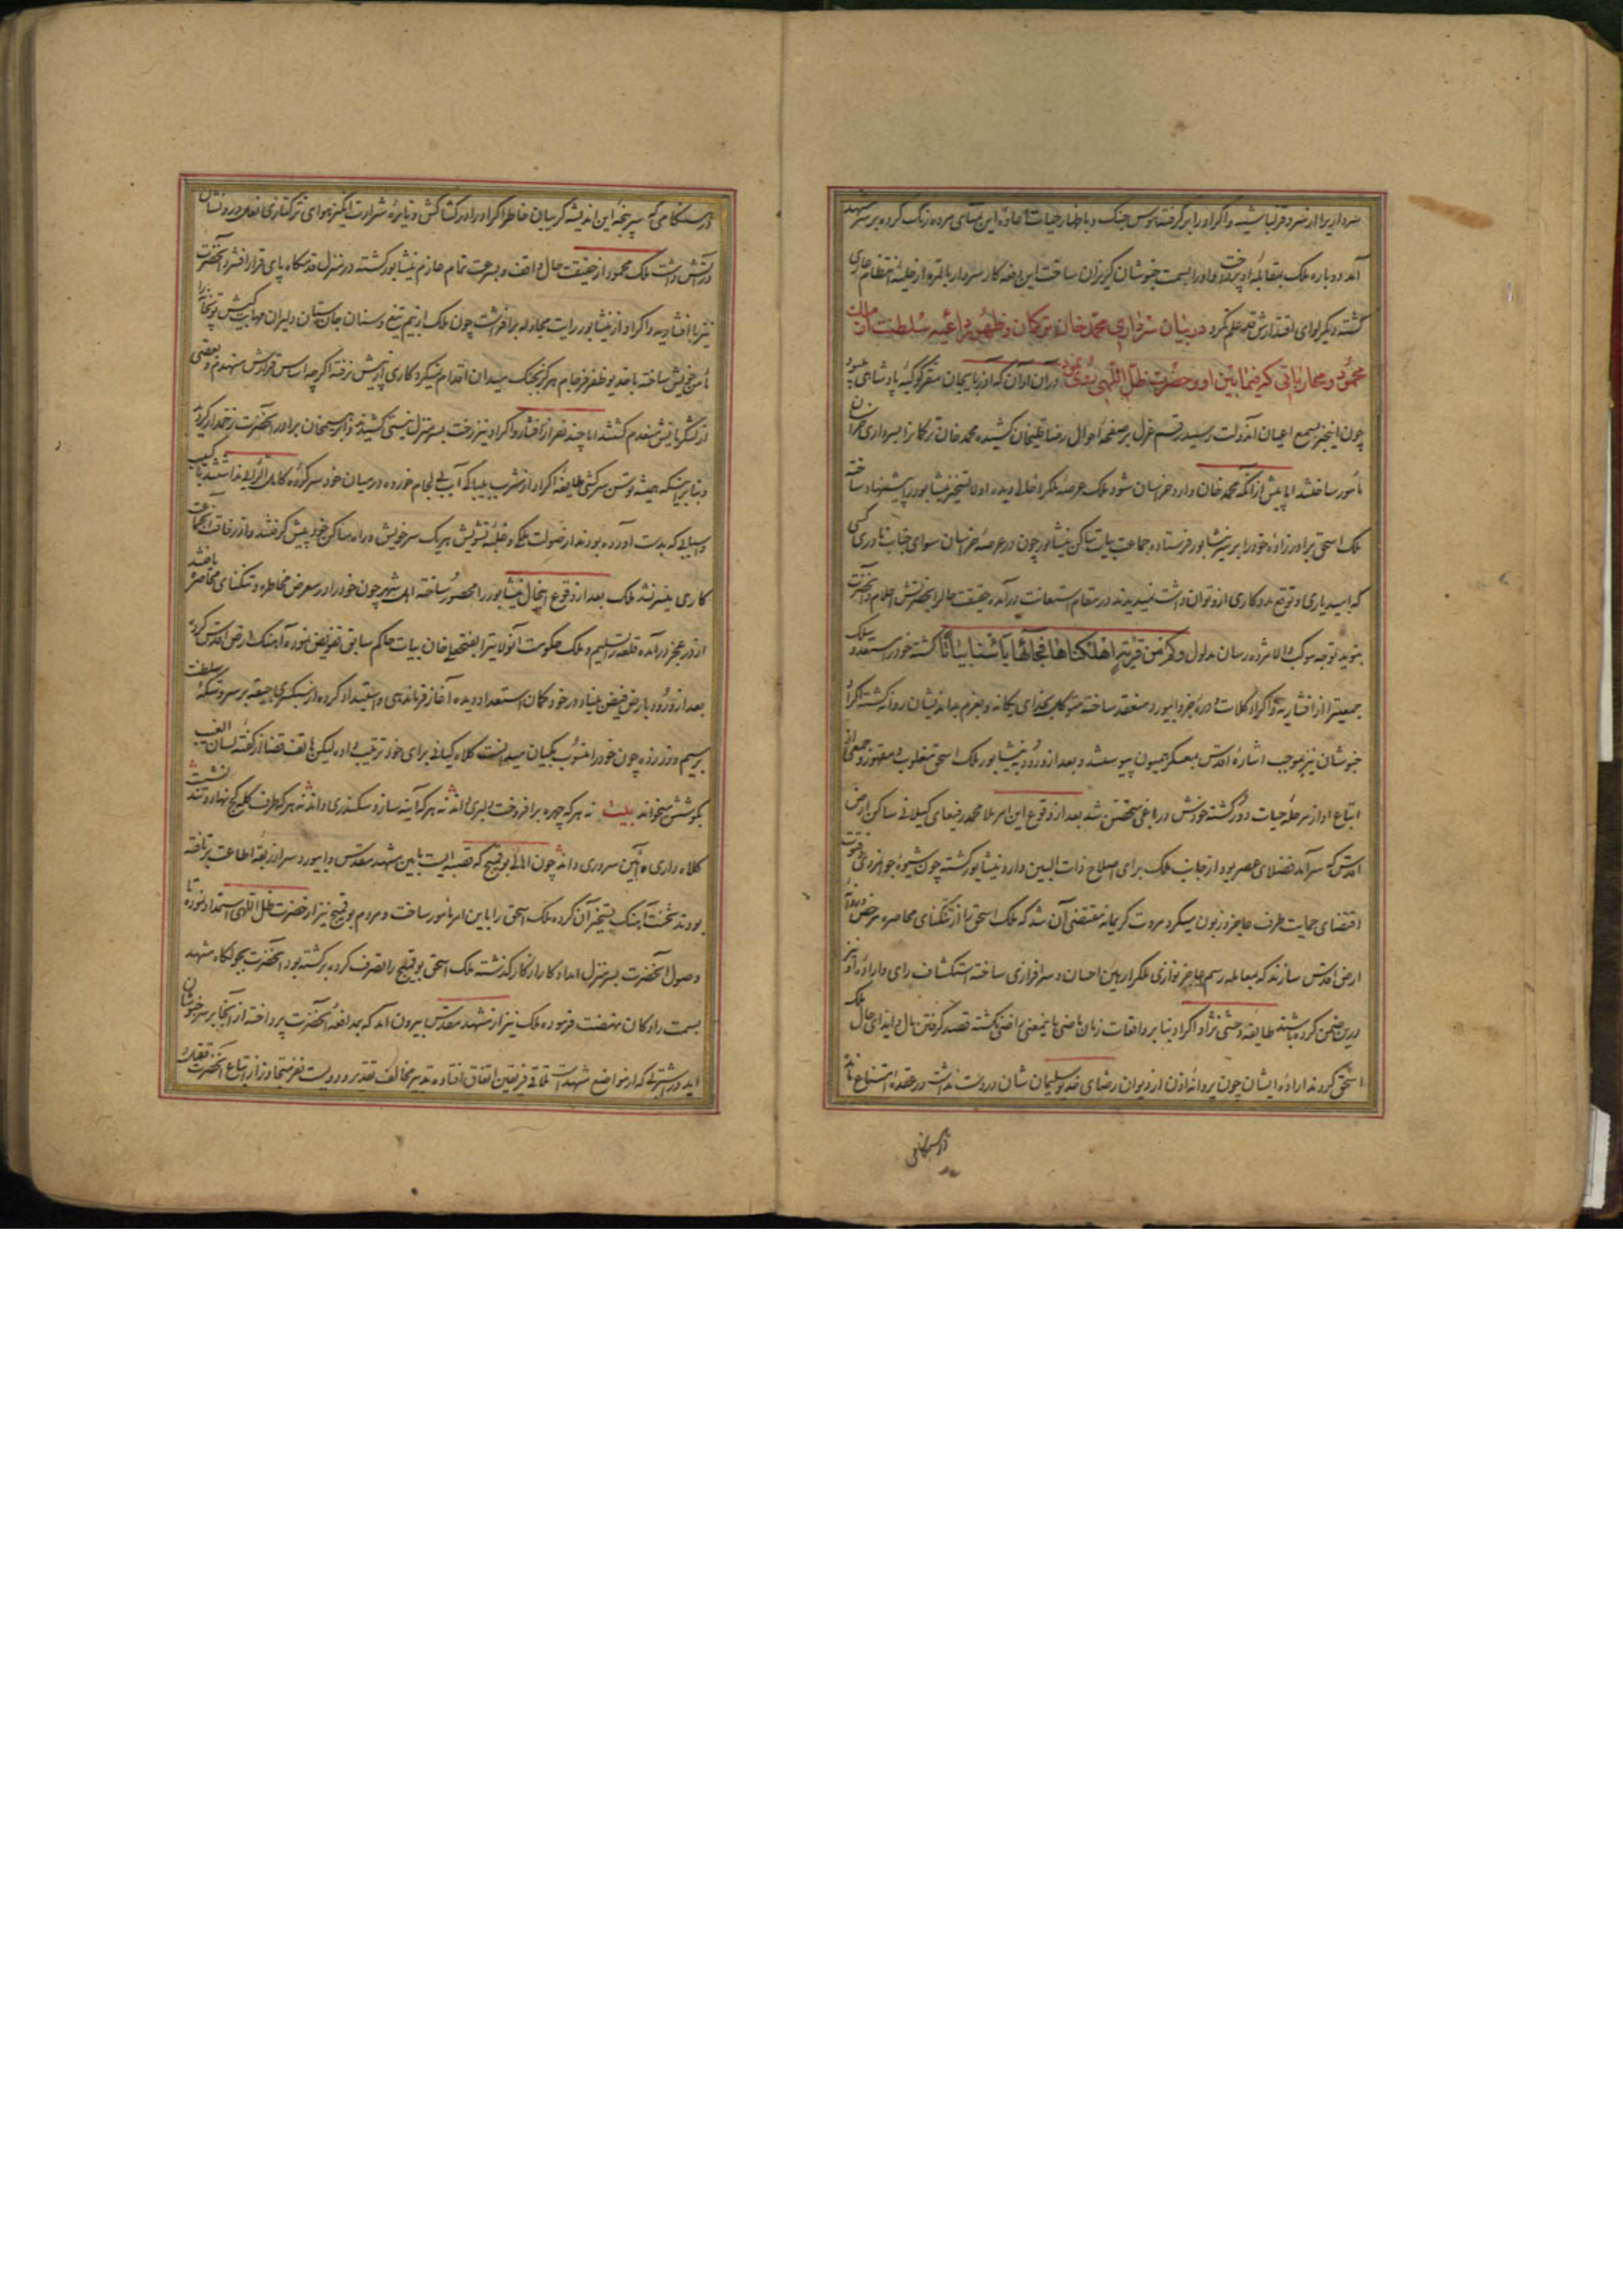 آمد دوباره ملک بمقابله او پرداخت و او را بسمت خبوشان گریزان ساخت این دفعه کار سردار بالمره از حلیهٔ انتظام عاری
گشته دیگر لوای اقتدارش قد علم نکرد در بیان سرداری محمد خان ترکمان و ظهور داعیه سلطنت از ملک
محمود و محارباتی که فیمابین او و حضرت ظل اللهی روی در آن اوان که آذربایجان مقر کوکبهٔ پادشاهی
چون این خبر بمسمع اعیان آندولت رسید رقم عزل بر صفحهٔ احوال رضا قلیخان کشیده محمد خان ترکمانرا بسرداری خراسان
مأمور ساختند اما پیش از آنکه محمد خان وارد خراسان شود ملک عرصهٔ ملکرا خالی دیده اولا تسخیر نیشابور را پیشنهاد ساخته
ملک اسحق برادر زاده خود را بر سر نیشابور فرستاده جماعت بیات ساکن نیشابور چون در عرصهٔ خراسان سوای جناب نادری کسی
که امید یاری و توقع مددکاری ازو توان داشت نمیدیدند در مقام استعانت درآمده حقیقت حالرا بحضرتش اعلام و آنحضرت
بنوید توجه موکب والا مژده رسان مدلول وکم من قریة اهلکناها فجاءها بأسنا بیاتا گشته خود در استعداد
جمعیترا از افشاریه و اکراد کلات و دره جز و ابیورد منعقد ساخته متوکلا بخدای یگانه و بعزم نیشابور روانه گشته اکراد
خبوشان نیز بموجب اشارهٔ اقدس بمعسکر همیون پیوستند و بعد از ورود بنیشابور ملک اسحق مغلوب و مقهور و جمعی از
اتباع او از مرحلهٔ حیات دور گشته خودش در باغی متحصن شد بعد از وقوع این امر ملا محمد رفیعای کیلانی ساکن ارض
اقدس که سرآمد فضلای عصر بود از جانب ملک برای اصلاح ذات البین وارد نیشابور گشته چون شیوهٔ جوانمردی و فتوت
اقتضای حمایت طرف عاجز و زبون میکرد مروت کریمانه مقتضی آن شد که ملک اسحق را از تنگنای محاصره مرخص و روانهٔ
ارض اقدس سازند که بمعامله رسم عاجز نوازی ملکرا رهین احسان و سرافرازی ساخته استکشاف رای
درین ضمن کرده باشند طایفهٔ وحشی نژاد اکراد بنا بر واقعات زمان ماضی باینمعنی راضی نگشته قصد گرفتن مال و ایذای حال ملک
اسحق کردند اراده ایشان چون پروانهٔ اذن از دیوان رضای خدیو سلیمان شان در دست نداشت در عقدهٔ امتناع ماند
در هنگامی که سرپنجهٔ این اندیشه گریبان خاطر اکراد را در کشاکش و نایرهٔ شرارت انگیز هوای ترکتازی
در آتش داشت ملک محمود از حقیقت حال واقف و بسرعت تمام عازم نیشابور گشته در منزل قدمگاه پای قرار افشرد آنحضرت
نیز با افشاریه و اکراد از نیشابور رایت مجادله برافراشت چون ملک از بیم تیغ و سنان جان ستان دلیران مهابت کیش توپخانه را
مأمن خویش ساخته با خدیو ظفر فرجام هرگز بجنگ میدان اقدام نمیکرد کاری از پیش نرفته اگرچه اساس قرارش منهدم و بعضی
از لشکریانش منعدم گشتند اما چند نفر از افشار و اکراد نیز رخت بسر منزل نیستی کشیده
و بنا بر اینکه همیشه توسن سرکشی طایفهٔ اکراد از مشرب بیباکی آب بی لجام خورده در میان خود سرکردهٔ کامل الرأی نداشتند
کاری میسر نشد ملک بعد از وقوع اینحال نیشابور را محصور ساخته اهل شهر چون خود را در معرض مخاطره و تنگنای محاصره یافتند
از در عجز درآمده قلعه را تسلیم و ملک حکومت آنولایترا بفتحعلی خان بیات حاکم سابق تفویض نموده آهنگ ارض اقدس کرد
بعد از ورود بارض فیض بنیاد در خود گمان استعداد دیده آغاز فرماندهی و استبداد کرده
برسیم و زر زده چون خود را منسوب بکیان میدانست کلاه کیانی برای خود ترتیب داده لیکن هاتف قضا از گفتهٔ لسان الغیب
بگوشش میخواند بیت نه هر که چهره برافروخت دلبری داند نه هر که آینه سازد سکندری داند نه هر که طرف کله کج نهاد و تند نشست
کلاه داری و آیین سروری داند چون اهالی بوقمج که قصبه ایست مابین مشهد مقدس و ابیورد سر از ربقهٔ اطاعت برتافته
بودند نخست آهنگ تسخیر آن کرده ملک اسحق را باین امر مأمور ساخت و مردم بوقمج نیز از حضرت ظل اللهی استمداد نموده تا
وصول آنحضرت بسر منزل امداد کار از کار گذشته ملک اسحق بوقمج را تصرف کرده برگشته بود آنحضرت بجولگاه مشهد
بسمت رادکان نهضت فرموده ملک نیز از مشهد مقدس بیرون آمد که بمدافعهٔ آنحضرت پرداخته از آنجا بر سر خبوشان
آید در که از مواضع مشهد است تلاقی فریقین اتفاق افتاده تدبیر مخالف تقدیر و دویست نفر متجاوز از اتباع آنحضرت
در هنگامی